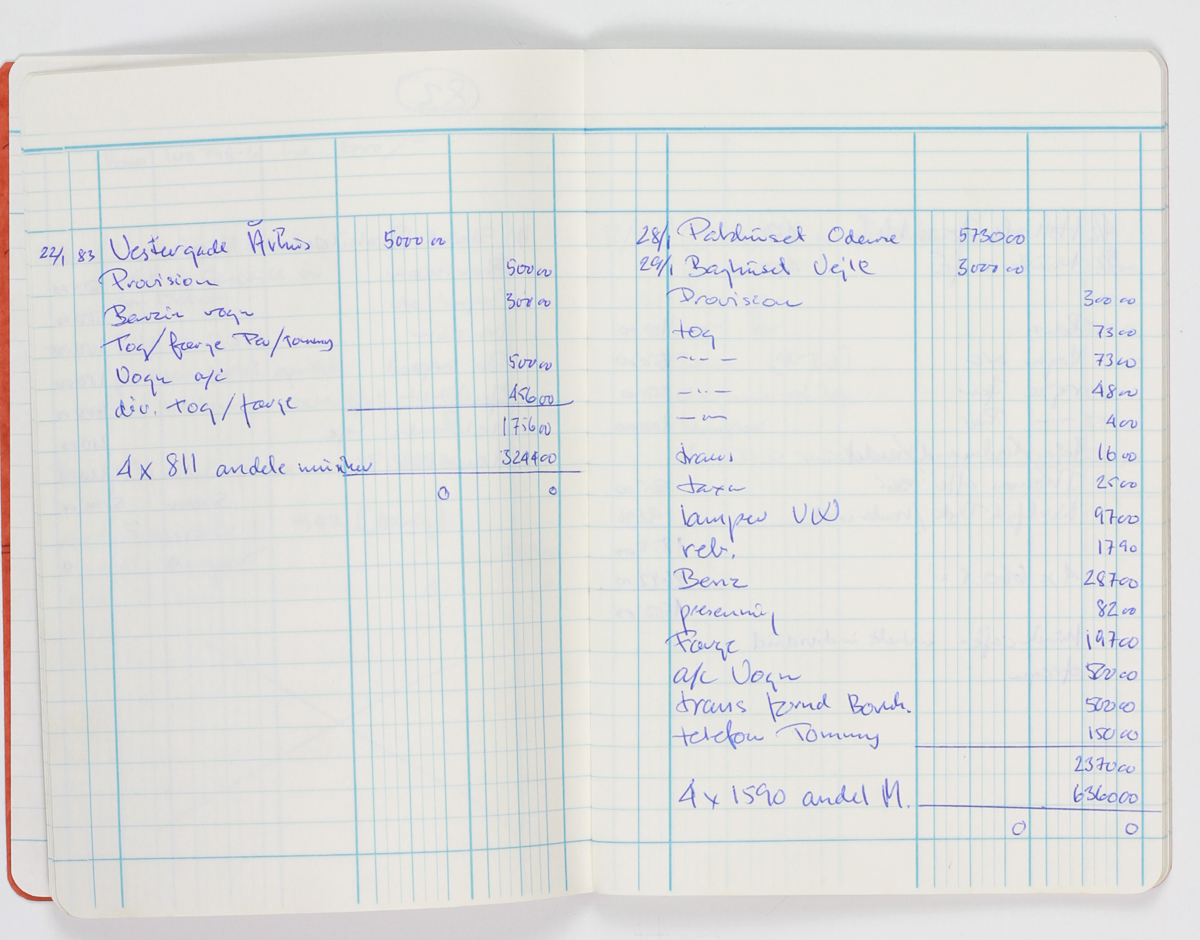 22/1 83 Vestergade Århus 5000 00
Provision 500 00
Benzin vogn 300 00
Tog/færge Per/Tommy
Vogn a/c 500 00
div. tog/færge 456 00
1756 00
4 x 811 andele musiker 3244 00
0 0
28/1 Pakhuset Odense 5730 00
29/1 Baghuset Vejle 3000 00
Provision 300 00
tog 73 00
—"— 73 00
—"— 48 00
—"— 4 00
trans 16 00
taxa 25 00
lamper VW 97 00
reb. 17 90
Benz 287 00
presenning 82 00
Færge 197 00
a/c Vogn 500 00
trans fond Bornh. 500 00
telefon Tommy 150 00
2370 00
4 x 1590 andel M. 6360 00
0 0